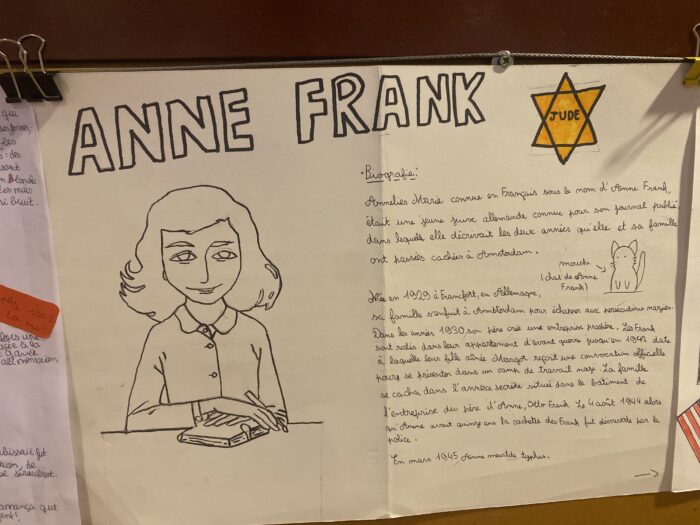 que
les
: des
blonde
mais
bruit.
une
à la
fit
de
que
ANNE FRANK
JUDE
• Biografie:
Annelies Marie connue en Français sous le nom d'Anne Frank,
était une jeune juive allemande connue pour son journal publié
dans lequels elle décrivait les deux années qu'elle et sa famille
ont passées cachées à Amsterdam.
moushi
(chat de Anne
Frank)
Née en 1929 à Francfort, en Allemagne,
sa famille s'enfuit à Amsterdam pour échapper aux persecutions nazies.
Dans les années 1930 son père crée une entreprise prospère. Les Frank
sont restés dans leur appartement d'avant guerre jusqu'en 1942 date
à laquelle leur fille aînée Margot reçoit une convocation officielle
pour se présenter dans un camp de travail nazi. La famille
se cacha dans l'annexe secrète situé dans le bâtiment de
l'entreprise du père d'Anne, Otto Frank. Le 4 août 1944 alors
qu'Anne avait quinze ans la cachette des Frank fut découverte par la
police.
En mars 1945 Anne meurt du typhus.